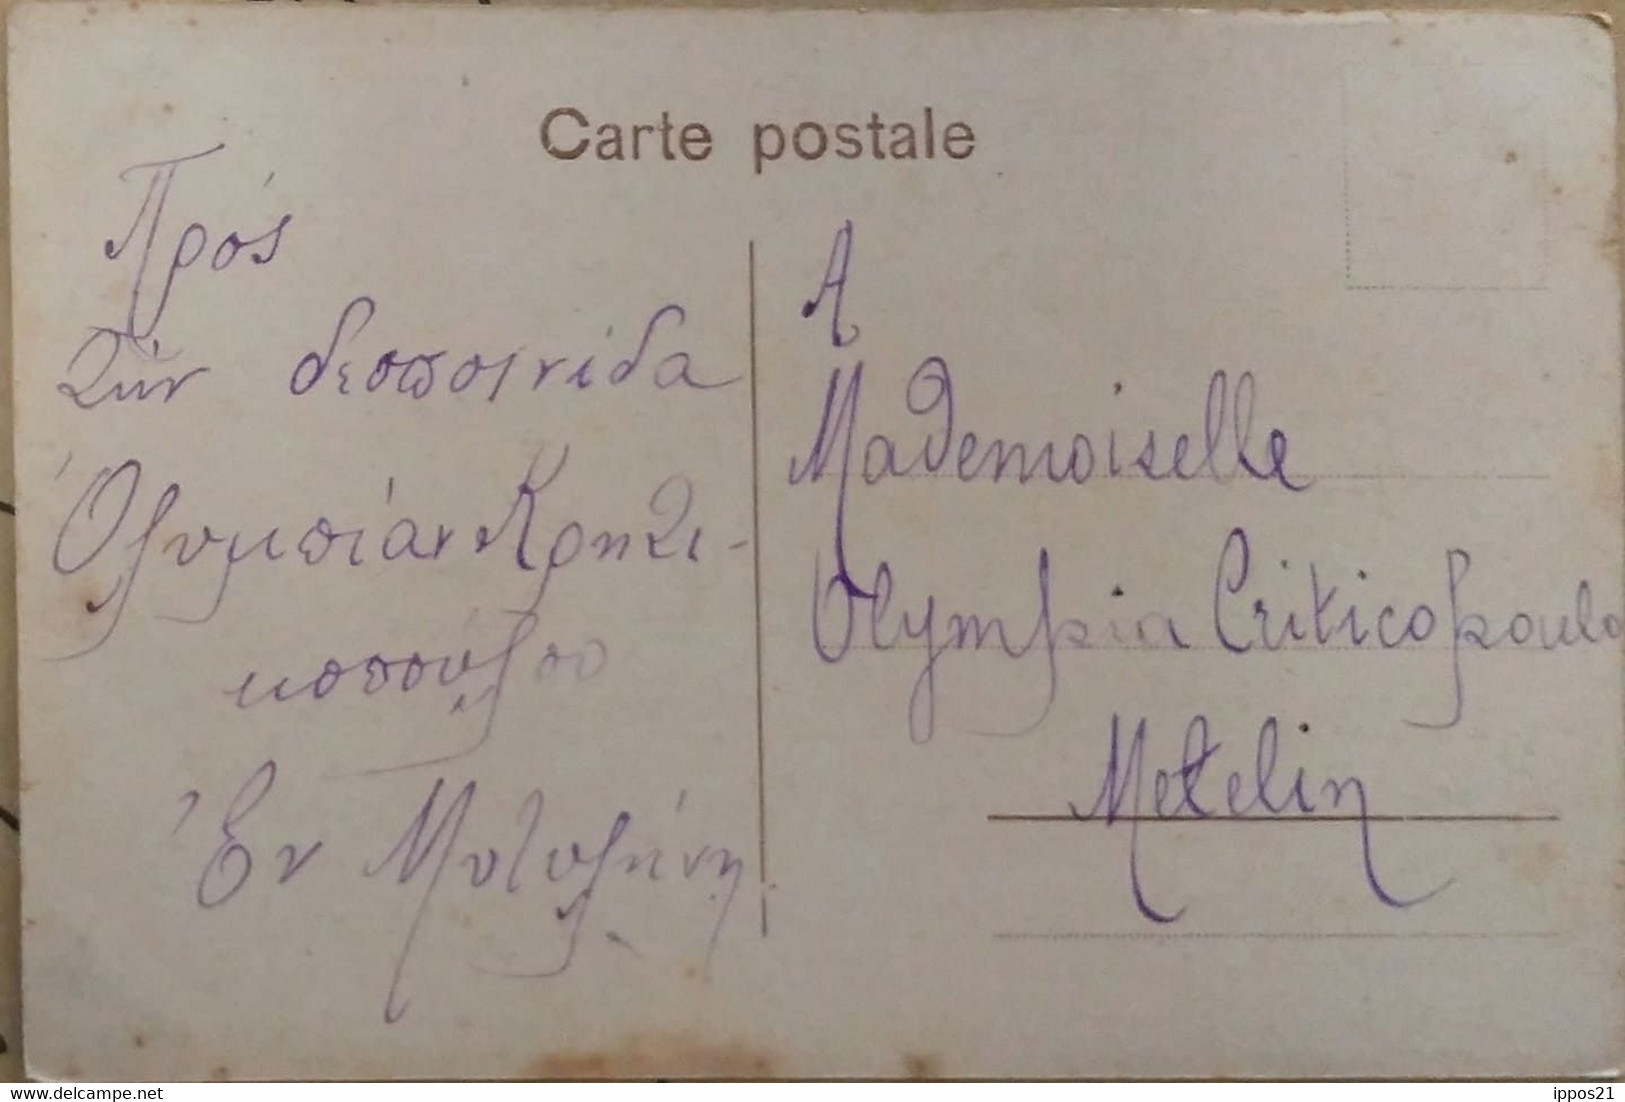 Carte postale
Πρός
τήν δεσποινίδα
Ὀλυμπίαν Κρητι-
κοπούλου
Ἐν Μυτυλήνη
A
Mademoiselle
Olympia Criticopoulo
Metelin
www.delcampe.net
ippos21